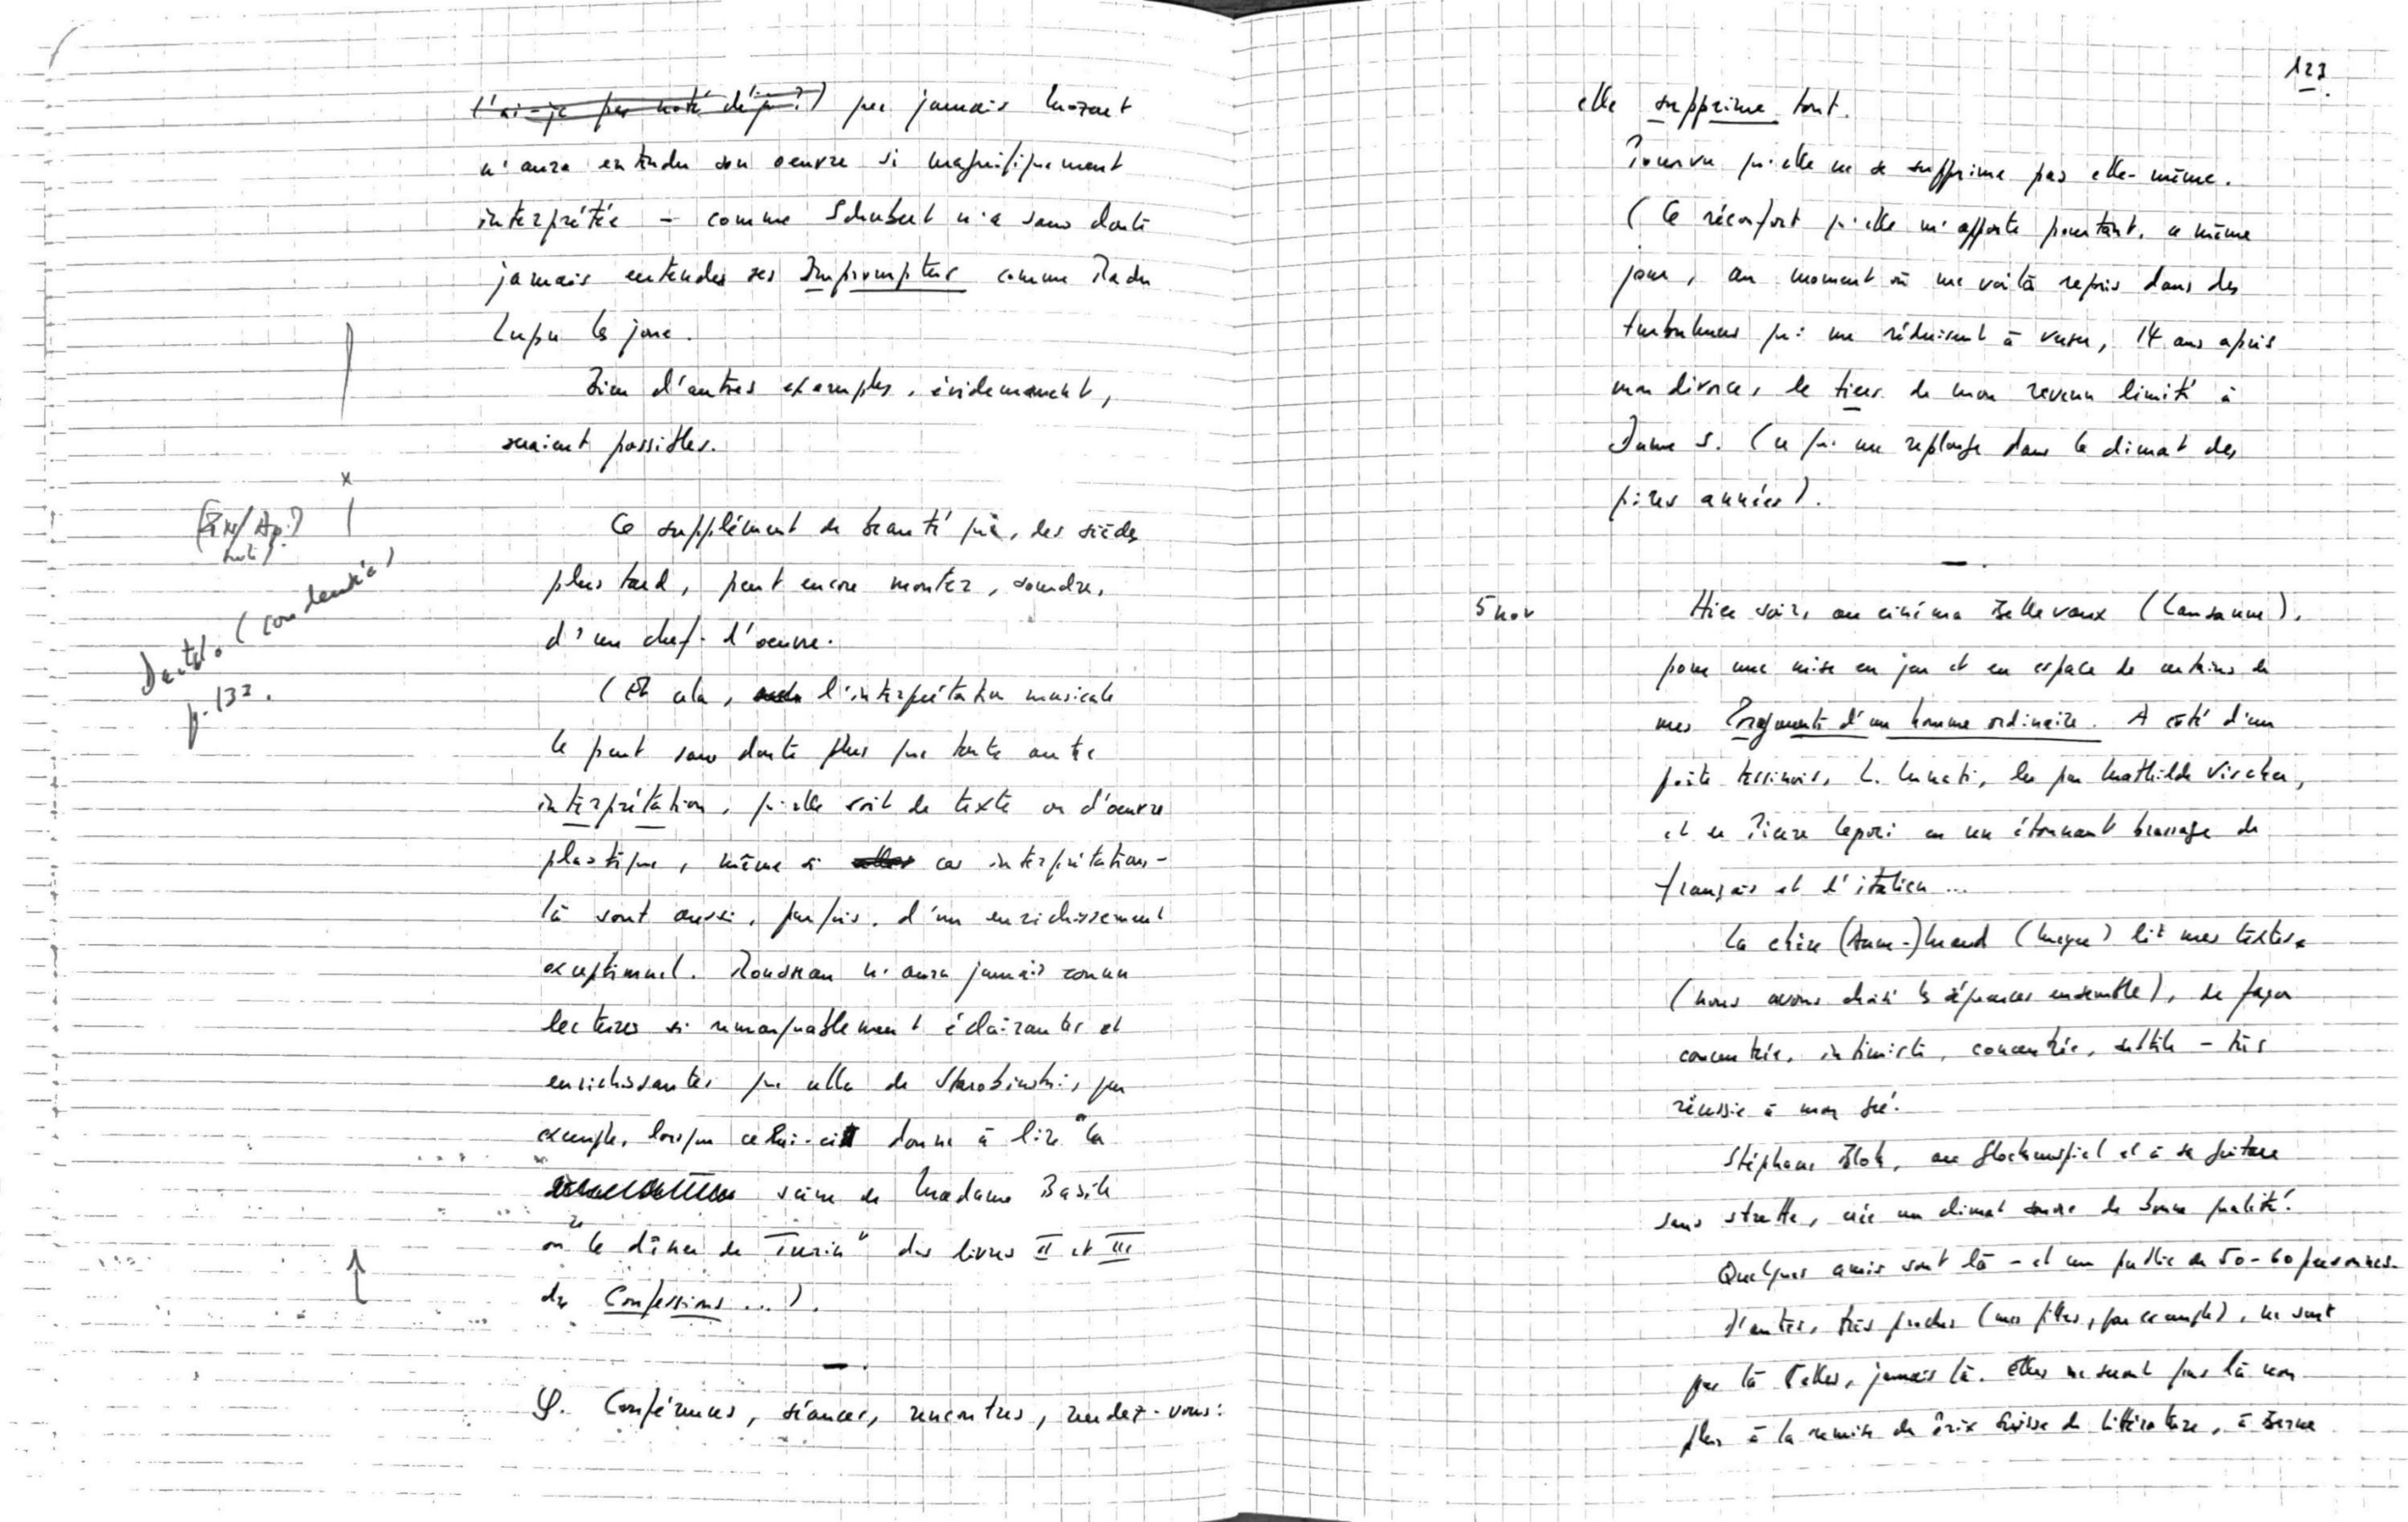 (l'ai-je pas noté déjà ?) que jamais Mozart
n'aura entendu son oeuvre si magnifiquement
interprétée – comme Schubert n'a sans doute
jamais entendu ses Impromptus comme Radu
Lupu les joue.
Bien d'autres exemples, évidemment,
seraient possibles.
x
Ce supplément de beauté qui, des siècles
plus tard, peut encore monter, sourdre,
d'un chef-d'oeuvre.
Dactylo (condensé)
p. 133.
(Et cela, l'interprétation musicale
le peut sans doute plus que toute autre
interprétation, qu'elle soit de texte ou d'oeuvre
plastique, même si ces interprétations-
là sont aussi, parfois, d'un enrichissement
exceptionnel. Rousseau n'aura jamais connu
lectures si remarquablement éclairantes et
enrichissantes que celle de Starobinski, par
exemple, lorsque celui-ci donne à lire "la
scène de Madame Basile
ou le dîner de Turin" des livres II et III
des Confessions...).
—.
S. Conférences, séances, rencontres, rendez-vous :
123.
elle supprime tout.
Pourvu qu'elle ne se supprime pas elle-même.
(Ce réconfort qu'elle m'apporte pourtant, ce même
jour, au moment où me voilà repris dans des
turbulences qui me réduisent à verser, 14 ans après
mon divorce, le tiers de mon revenu limité à
Dame S. (ce qui me replonge dans le climat des
pires années).
—.
5 nov
Hier soir, au cinéma Bellevaux (Lausanne),
pour une mise en jeu et en espace de certains de
mes Fragments d'un homme ordinaire. A côté d'un
poète tessinois, L. lu par Mathilde Vischer,
et de Pierre Lepori en un étonnant brassage de
français et d'italien...
La chère (Anne-)Maud (Meyer) lit mes textes
(nous avons choisi les séquences ensemble), de façon
concentrée, intimiste, concentrée, subtile – très
réussie à mon gré.
Stéphane Blok, au Glockenspiel et à sa guitare
sans strette, crée un climat sonore de bonne qualité.
Quelques amis sont là – et un public de 50-60 personnes.
D'autres, très proches (mes filles, par exemple), ne sont
pas là. Telles, jamais là. Elles ne seront pas là non
plus à la remise du Prix Suisse de Littérature, à Berne